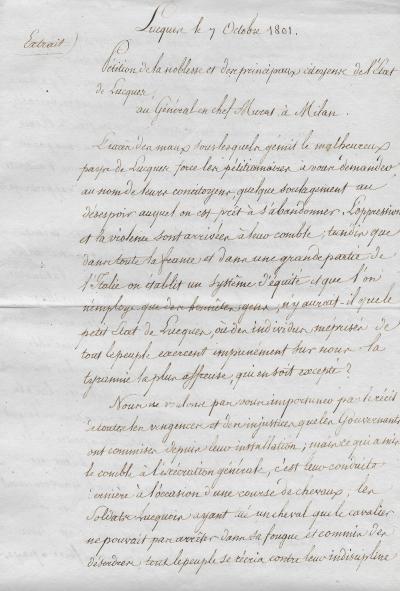 Lucques le 7 Octobre 1801.
Extrait)
Pétition de la noblesse et des principaux citoyens de l'Etat
de Lucques
au Général en chef Murat à Milan.
L'excès des maux sous lesquels gémit le malheureux
pays de Lucques force les pétitionnaires à vous demander
au nom de leurs concitoyens, quelque soulagement au
désespoir auquel on est prêt à s'abandonner. L'oppression
et la violence sont arrivées à leur comble; tandis que
dans toute la france et dans une grande partie de
l'Italie on établit un système d'équité et que l'on
n'employe que des honnêtes gens, n'y aurait-il que le
petit Etat de Lucques, où des individus méprisés de
tout le peuple exercent impunément sur nous la
tyrannie la plus affreuse, qui en soit excepté?
Nous ne voulons pas vous importuner par le récit
de toutes les vengeances et des injustices que les Gouvernants
ont commises depuis leur installation; mais ce qui a mis
le comble à l'exécration générale, c'est leur conduite
dernière à l'occasion d'une course de chevaux, les
Soldats Lucquois ayant tué un cheval que le cavalier
ne pouvait pas arrêter dans sa fougue et commis des
désordres tout le peuple se récria contre leur indiscipline